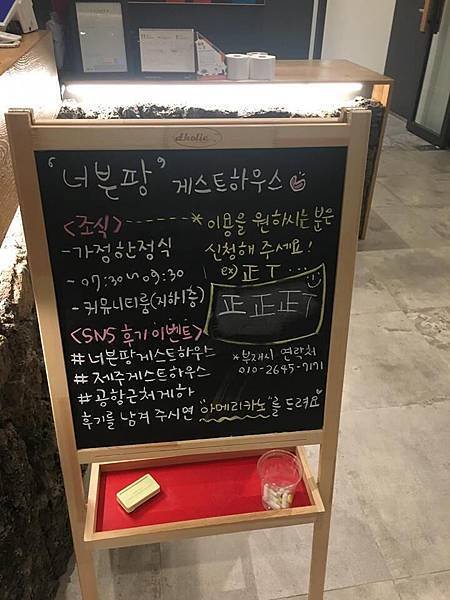 dholic
"너븐팡" 게스트하우스
<조식> ------ * 이용을 원하시는 분은
신청해 주세요!
- 가정한정식
ex) 正 T ...
- 07:30~09:30
- 커뮤니티룸(지하1층)
正 正 正 T
<SNS 후기 이벤트>
#너븐팡게스트하우스
*부재시 연락처
010-2645-7171
#제주게스트하우스
#공항근처게하
후기를 남겨 주시면 "아메리카노"를 드려요